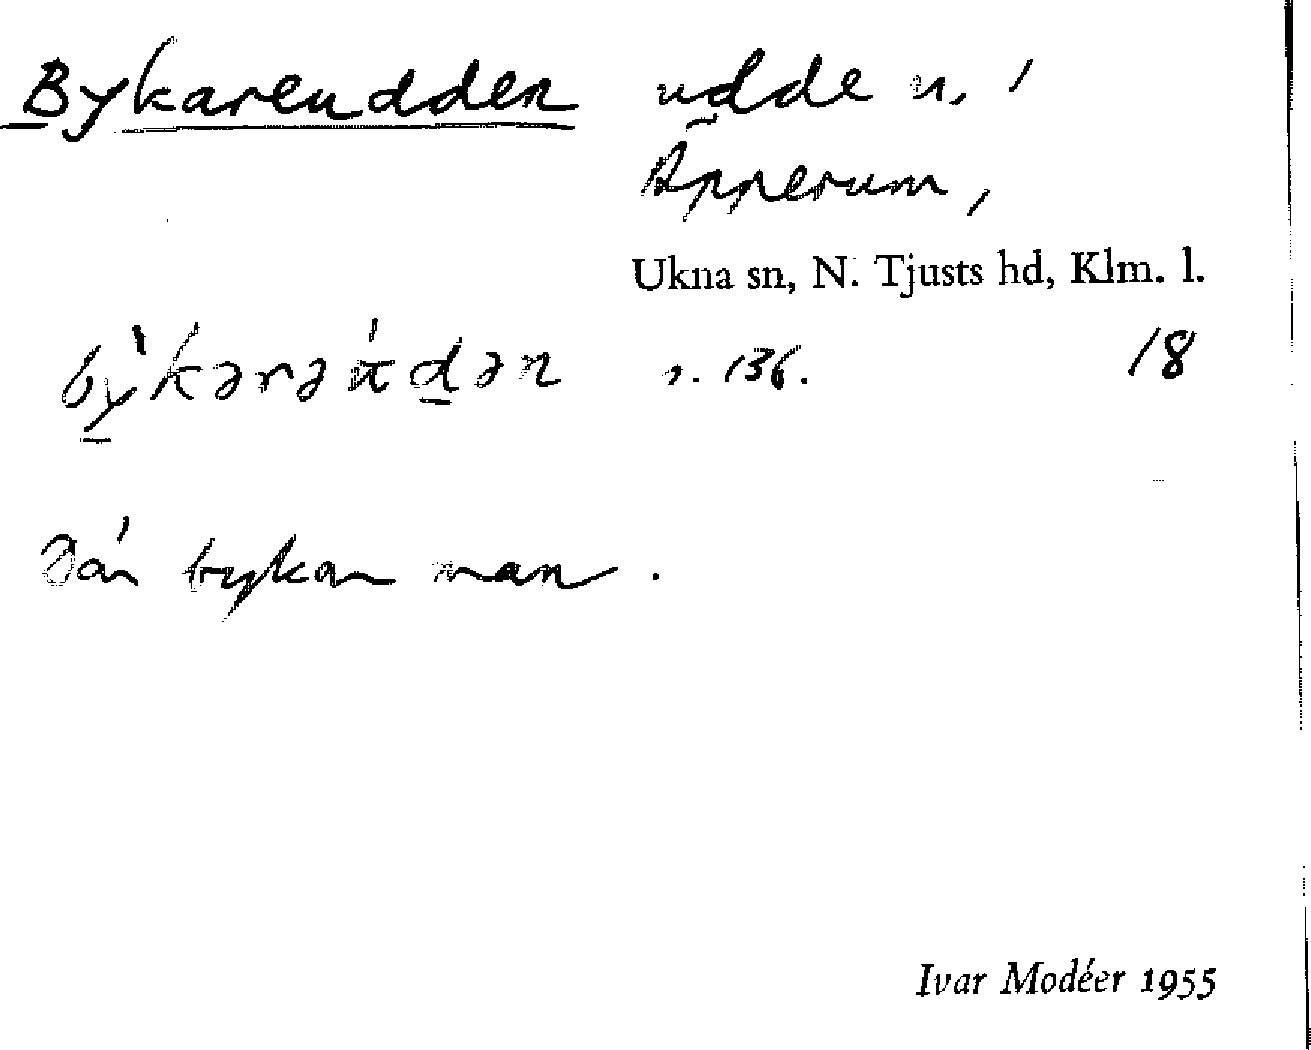 Bykareudden udde u. /
Äpperum,
Ukna sn, N. Tjusts hd, Klm. l.
bỳ̱kərəu̇́ḏən s. 136. 18
Där bykar man.
Ivar Modéer 1955